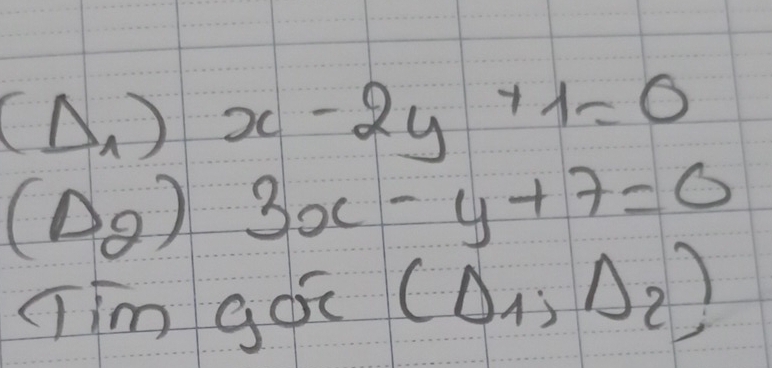 (Δ₁) x - 2y + 1 = 0
(Δ₂) 3x - y + 7 = 0
Tìm góc (Δ₁; Δ₂)